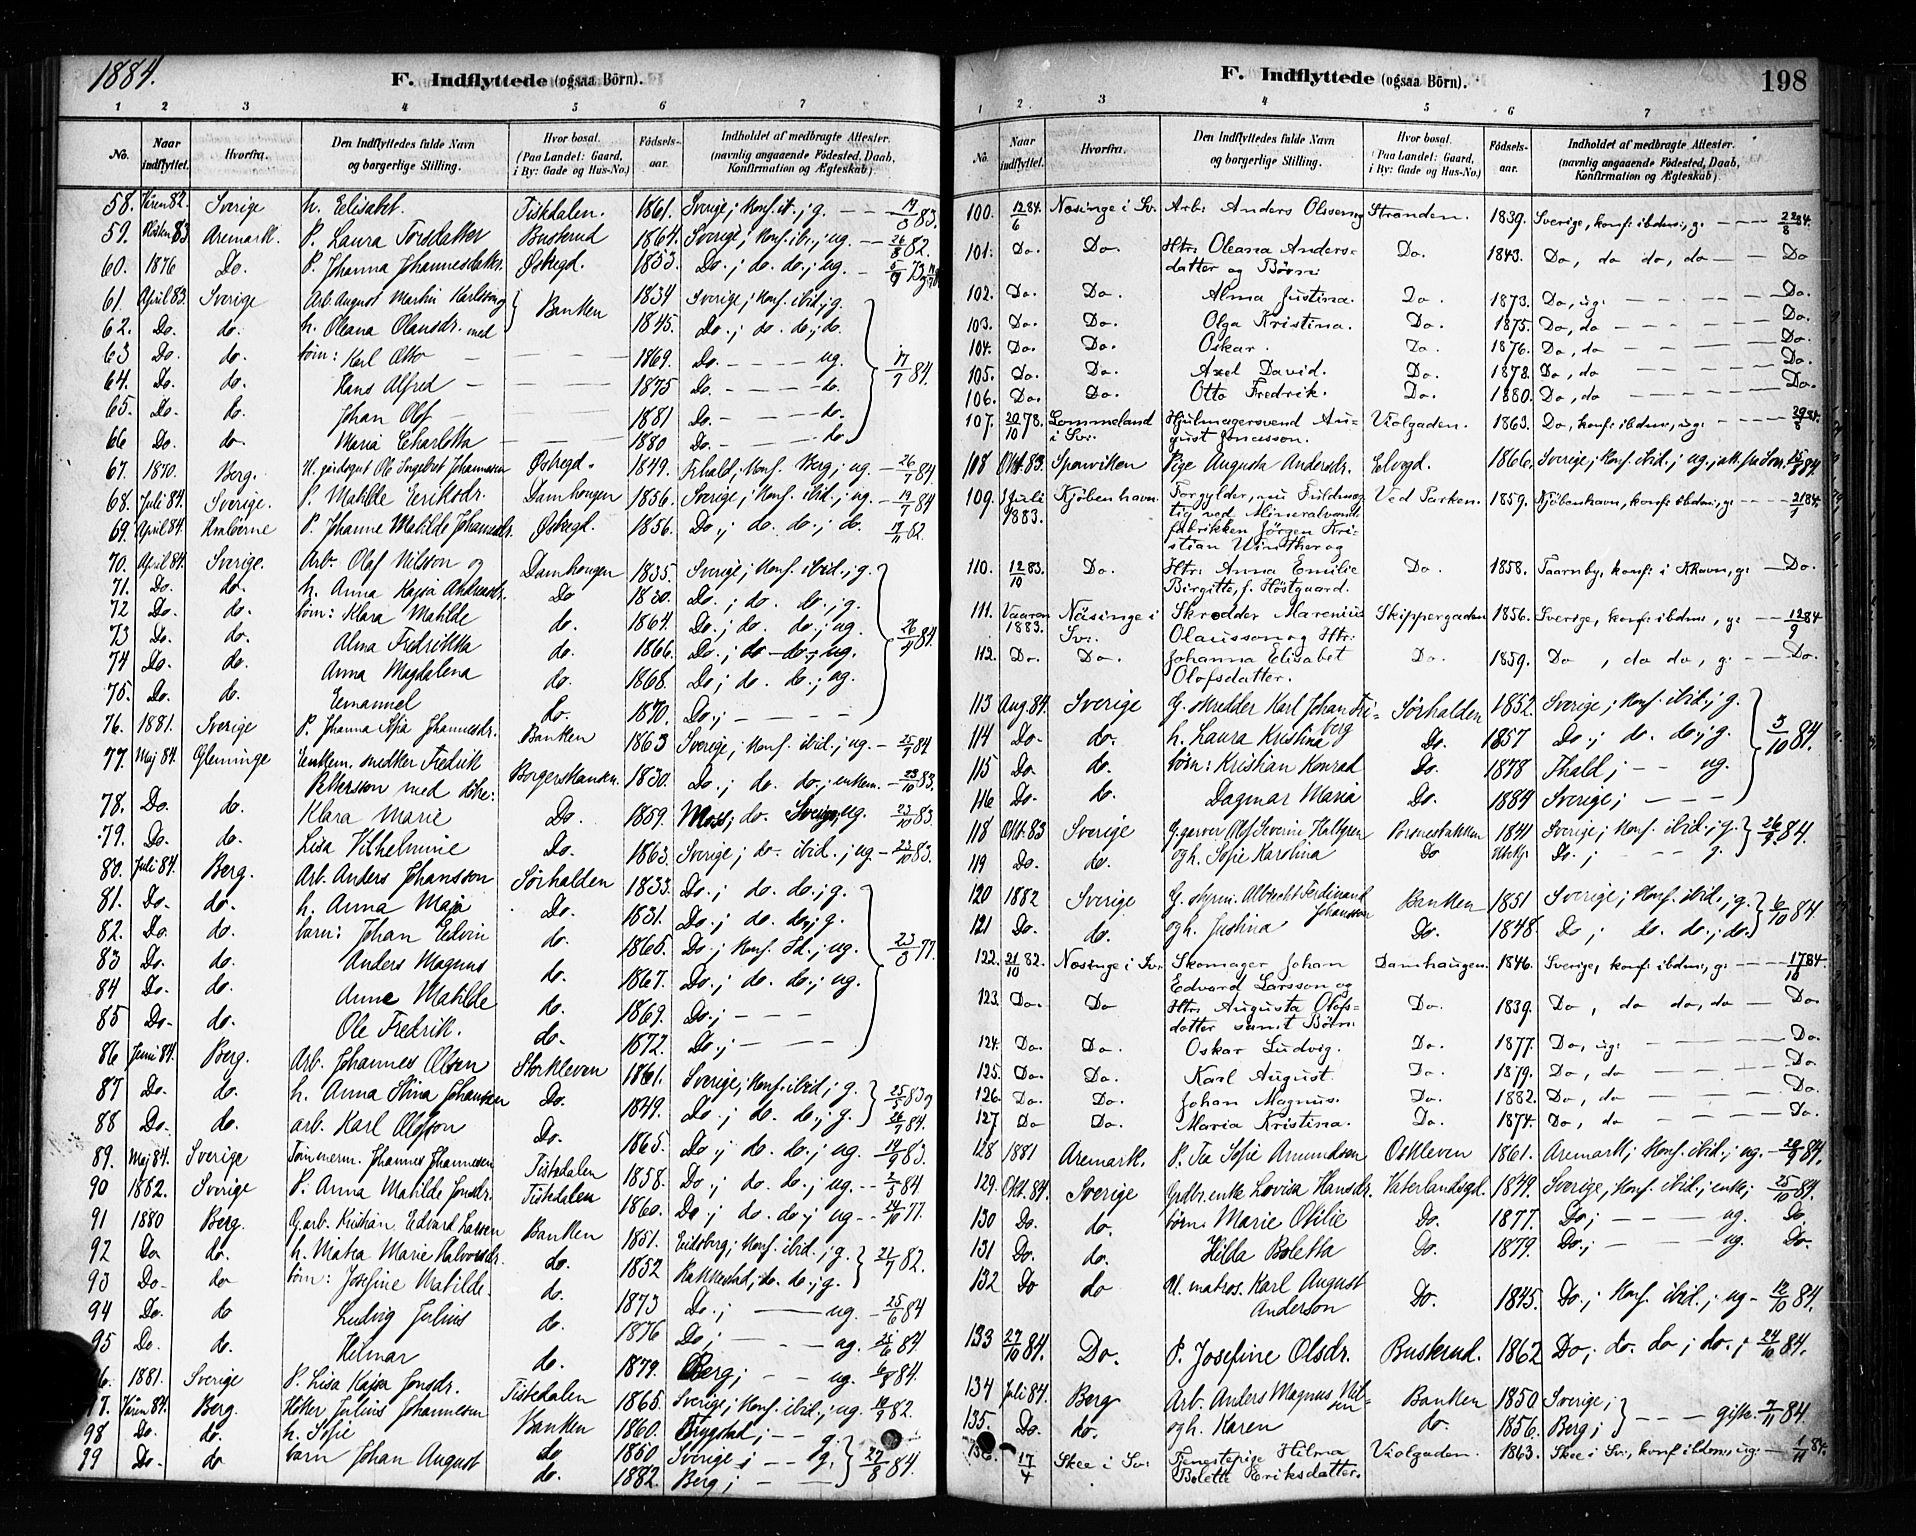 1884.
F. Indflyttede (ogsaa Börn).
1 2 3 4 5 6 7
No. Naar indflyttet. Hvorfra. Den Indflyttedes fulde Navn og borgerlige Stilling. Hvor bosat. (Paa Landet: Gaard, i By: Gade og Hus-No.) Fødsels-aar. Indholdet af medbragte Attester. (navnlig angaaende Födested, Daab, Konfirmation og Ægteskab)
58. Sverige h. Elisabet. Tistedalen. 1861. Sverige; g. 83.
59. Høsten 83 Aremark. P. Laura Torsdatter Buskerud 1864. Sverige; Konf. ib.; ug. 26/8 82.
60. 1876 Do. P. Johanna Johannesdatter. Østregd. 1853. Do.; do. do.; ug.
61. April 83. Sverige Arb. August Martin Karlsson og Banken 1834 Sverige; Konf. ibid.; g.
62. Do. do. h. Oleana Olausdr. med 1845. Do.; do. do.; do.
63 Do. do. börn: Karl Otto 1869. Do. ug. 17/7 84.
64. Do. do. Hans Alfred 1875 Do. do.
65. Do. do. Johan Olof 1881 Do. do.
66 Do. do. Maria Charlotta 1880 Do. do.
67. 1870. Berg. Ole Ingebret Johannesen Østregd. 1849. Frhald; Konf. Berg; ug. 26/7 84.
68. Juli 84. Sverige. P. Matilde Eriksdr. Damhaugen 1856. Sverige; Konf. ibid.; ug. 19/7 84
69. April 84. P. Johanne Matilde Johannesdr. Østregd. 1856. Do.; do. do.; do. 82.
70. April 84. Sverige. Arb. Olaf Nilsson og Damhaugen 1835. Sverige; Konf. ibid.; g.
71. Do. do. h. Anna Kajsa Andreasdr. Do 1830. Do.; do. do.; g.
72 Do. do. börn: Klara Matilde do. 1864. Do.; do. do.; ug.
73 Do. do. Alma Fredrikka do. 1866. Do.; do do.; ug. 84.
74 Do. do. Anna Magdalena do. 1868. Do; do. do.; ug.
75. Do. do. Emanuel do. 1870. Do.;
76. 1881. Sverige P. Johanna Sofia Johannesdr. Banken 1863 Sverige; Konf. ibid.; ug. 25/7 84
77. Maj 84. Glemminge Enkem. snedker Fredrik
Pettersson med døtre: Borgerskansen. 1830. Do.; do. do.; enkem. 23/10 83.
78. Do. do. Klara Marie Do. 1859. Moss; do. Sverige; ug. 23/10 83.
79. Do. do. Lisa Vilhelmine Do. 1863. Sverige; do. ibid.; ug 23/10 83.
80. Juli 84. Berg. Arb. Anders Johansson Sørhalden 1833. Do.; do. do.; g.
81. Do. do. h. Anna Maja Do. 1831. Do.; do. do.; g.
82. Do. do. barn: Johan Edvin do. 1865. Do; Konf. ; ug. 77.
83 Do. do. Anders Magnus do. 1867. Do.; do. do.; ug.
84 Do. do. Anne Matilde do. 1869. Do.;
85 Do. do. Ole Fredrik. do. 1872. Do.;
86 Juni 84. Berg. Arb. Johannes Olsen Storkleven 1861. Sverige; Konf. ibid.; g.
87 Do. do. h. Anna Stina Johansson Do. 1849. Do.; do. do.; g.
88 Do. do. arb. Karl Olofson Do. 1865. Do.; do. do.; ug. 83.
89. Maj 84. Sverige Tømmerm. Johannes Johannesen Tistedalen 1858. Do.; do. do.; ug. 84
90 1882. Sverige P. Anna Matilde Jonsdr. Tistedalen 1860. Do.; do. do.; ug 77.
91 1880 Berg. G. arb. Kristian Edvard Larsen Banken 1851. Eidsberg; Konf. ibid.; g.
92 Do. do. h. Matea Marie Halvorsdr. do. 1852 Rakkestad; do. do.; g. 21/7 82.
93 Do. do börn: Josefine Matilde. do. 1873 Do.; ug. 25/6 84
94 Do. do Ludvig Julius do. 1876 Do; ug. 84
95 Do. do. Hilmar do. 1879. Berg; ug. 84.
1881. Sverige P. Lisa Kajsa Jonsdr. Tistedalen 1865. Sverige; Konf. ibid.; ug. 82.
Berg. Julius Johannesen Banken 1860. Trygstad; g.
98 Do. do. h. Sofie do 1850 Sverige; g. 27/8 84.
99 Do. do barn Johan August do. 1882. Berg;
F. Indflyttede (ogsaa Börn).
198
1 2. 3 4 5 6 7
No. Naar indflyttet. Hvorfra. Den Indflyttedes fulde Navn og borgerlige Stilling. Hvor bosat. (Paa Landet: Gaard, i By: Gade og Hus-No.) Fødsels-aar. Indholdet af medbragte Attester. (navnlig angaaende Födested, Daab, Konfirmation og Ægteskab)
100. 12/6 84. Næsinge i Sv. Arb. Anders Olssen og Stranden. 1839. Sverige, konf. ibdm., g. 22/8 84.
101. Do. Do. Htr. Oleana Anders-
datter og Börn: Do. 1843. Do, do do, do Do
102. Do. Do. Alma Justina. Do. 1873. Do, ug. Do.
103. Do. Do. Olga Kristina. Do. 1875. Do, do Do.
104. Do. Do. Oskar. Do. 1876. Do, do Do.
105. Do. Do. Axel David. Do. 1878. Do, do Do.
106. Do. Do. Otto Fredrik. Do. 1880. Do, do Do.
107. 20/10 78. Lommeland i Sv. Hjulmagersvend Au-
gust Jonasson. Violgaden. 1863. Do, konf. ibdm., ug. 84.
108 Okt. 83. Sponviken Pige Augusta Andersdr. Elvegd. 1866. Sverige; Konf. ibid.; ug. 84
109. 1 Juli 1883. Kjöbenhavn. Forgylder, nu Fuldmæg-
tig ved Mineralvands-
fabrikken Jörgen Kri-
stian Winther og Ved Parken. 1859. Kjöbenhavn, konf. ibdm., g. 84.
110. 12/10 83. Do. Htr. Anna Emilie
Birgitte, f. Höstgaard. Do. 1858. Taarnby, konf. i Khavn, g. Do.
111. Vaaren 1883. Näsinge i Sv. Skrædder Marenius
Olausson og Htr. Skippergaden 1856. Sverige, konf. ibdm., g. 12/9 84
112. Do. Do. Johanna Elisabet
Olofsdatter. Do. 1859. Do, do do, g. Do.
113 Aug. 84. Sverige G. skredder Karl Johan Fri-
berg Sørhalden 1852. Sverige; Konf. ibid.; g.
114 Do. do. h. Laura Kristina Do. 1857 Do.; do. do.; g. 3/10 84.
115 Do. do. börn: Kristian Konrad Do. 1878 Fhald; ug.
116 Do. do. Dagmar Maria Do. 1884 Sverige;
118 Okt. 83 Sverige G. garver Olof Severin Hallgren 1841 Sverige; Konf. ibid.; g. 84.
119 Do. do. og h. Sofie Karolina Do Do.; g.
120 1882 Sverige G. styrm. Albrecht Ferdinand
Johansson Banken 1851 Sverige; Konf. ibid.; g. 6/10 84
121 Do. do. og h. Justina Do. 1848. Do; do. do.; do.
122. 21/10 82. Næsinge i Sv. Skomager Johan
Edvard Larsson og Damhaugen. 1846. Sverige, konf. ibdm., g. 17/10 84.
123. Do. Do Htr. Augusta Olofs-
datter samt Börn: Do. 1839. Do, do do, do Do.
124. Do. Do. Oskar Ludvig. Do. 1877. Do, ug. Do.
125. Do. Do. Karl August. Do. 1879. Do, do Do.
126. Do. Do. Johan Magnus. Do. 1882. Do, do Do.
127 Do Do. Maria Kristina. Do. 1874. Do, do Do.
128 1881 Aremark. P. Tea Sofie Amundsen Oskleven 1861. Aremark; Konf. ibid.; ug. 84.
129. Okt. 84. Sverige enke Lovisa Hansdr. Vaterlandsgd. 1849. Sverige; Konf. ibid.; enke; 25/10 84.
130 Do. do. börn: Marie Otilie Do. 1877. Do; ug. Do.
131 Do. do. Hilda Boletta Do. 1879. Do.; ug. Do.
132 Do do U. matros. Karl August
Anderson Do. 1845. Do.; Konf. ibid.; ug 12/10 84.
133 27/10 84. Do. P. Josefine Olsdr. Buskrud. 1862 Do; do. do; do.; 24/10 84.
134 Juli 84. Berg Arb. Anders Magnus Nil-
sen Banken 1850. Sverige;
135. Do. do. og h. Karen do. 1856. Berg; gifte. 7/11 84.
136. 17/4 Skee i Sv. Tjenestepige Hilma
Bolette Eriksdatter. Violgaden. 1863. Skee i Sv., konf. ibdm., ug. 1/11 84.